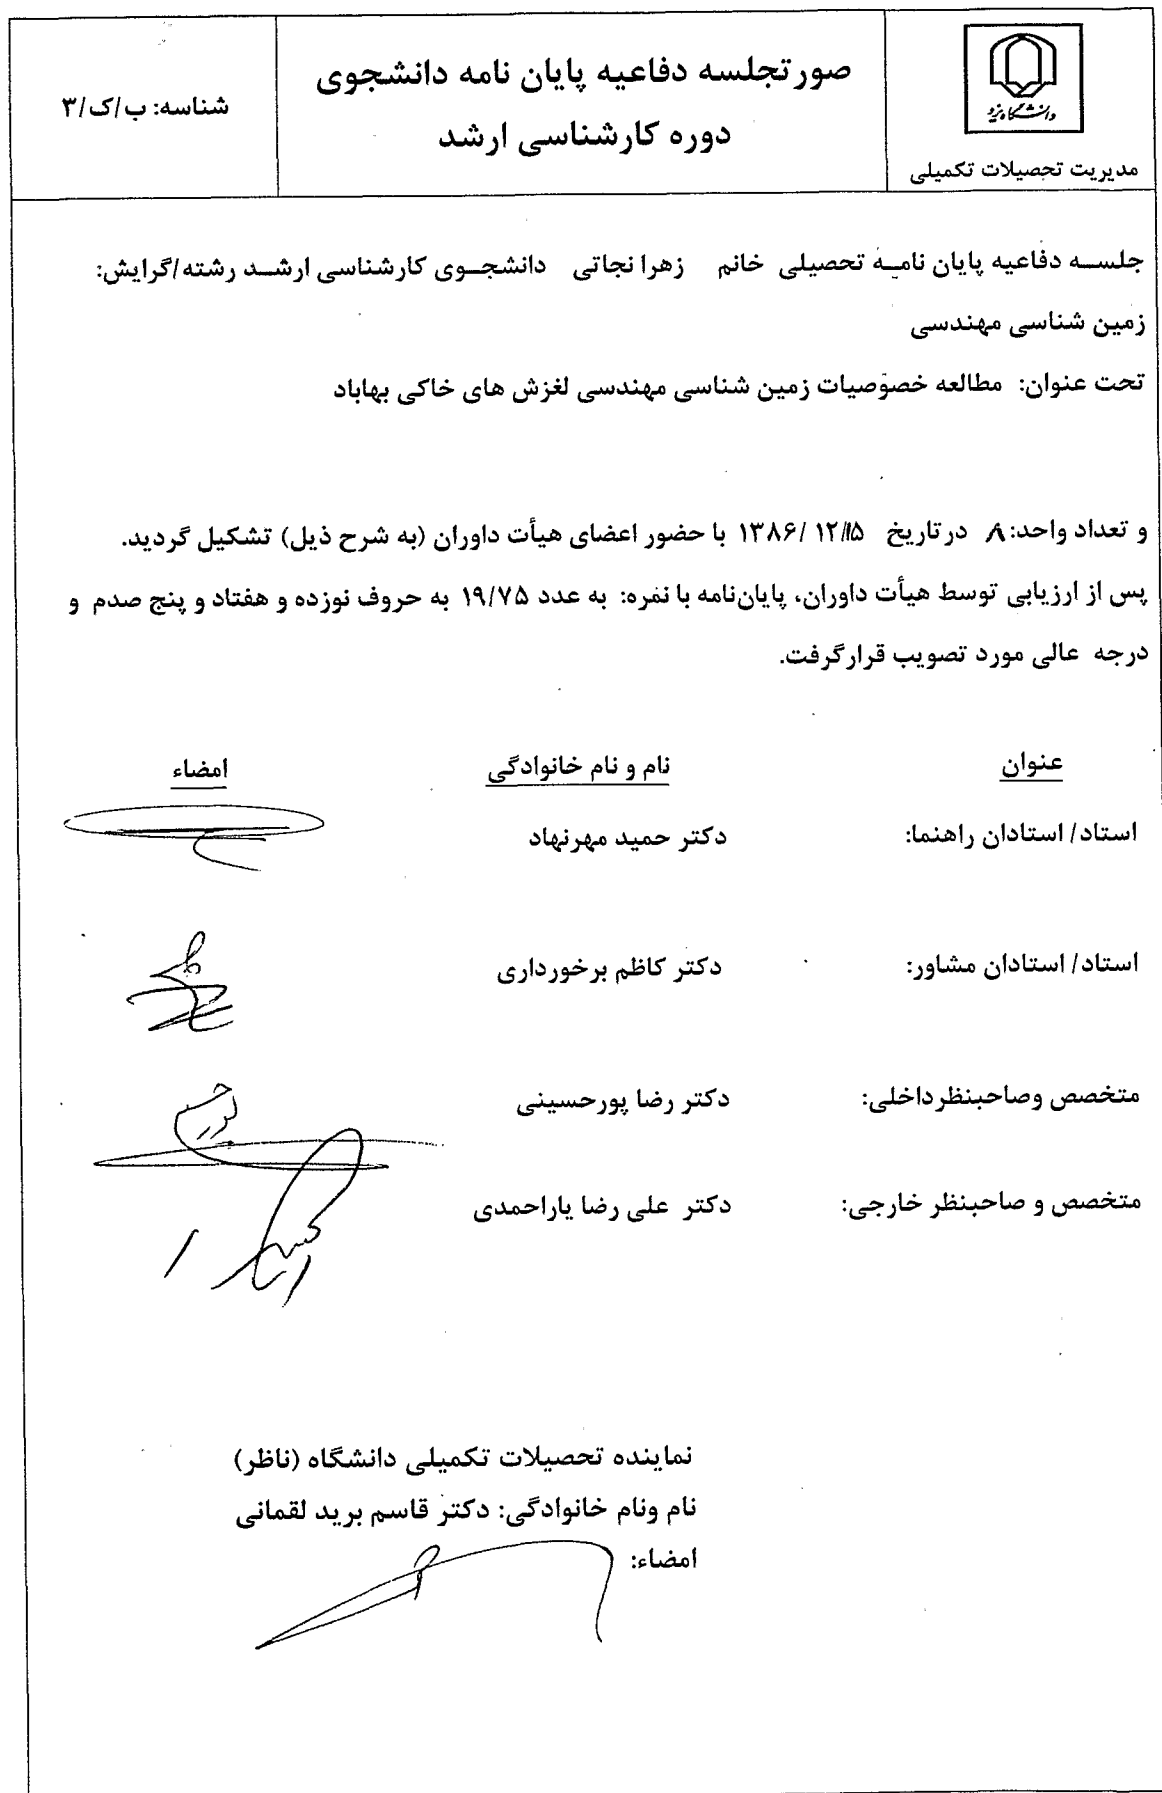 دانشگاه یزد
مدیریت تحصیلات تکمیلی
صورتجلسه دفاعیه پایان نامه دانشجوی
دوره کارشناسی ارشد
شناسه: ب/ک/۳
جلسه دفاعیه پایان نامه تحصیلی خانم زهرا نجاتی دانشجوی کارشناسی ارشد رشته/گرایش:
زمین شناسی مهندسی
تحت عنوان: مطالعه خصوصیات زمین شناسی مهندسی لغزش های خاکی بهاباد
و تعداد واحد: ۸ در تاریخ ۱۳۸۶/ ۱۲/۱۵ با حضور اعضای هیأت داوران (به شرح ذیل) تشکیل گردید.
پس از ارزیابی توسط هیأت داوران، پایان‌نامه با نمره: به عدد ۱۹/۷۵ به حروف نوزده و هفتاد و پنج صدم و
درجه عالی مورد تصویب قرارگرفت.
عنوان نام و نام خانوادگی امضاء
استاد/ استادان راهنما: دکتر حمید مهرنهاد
استاد/ استادان مشاور: دکتر کاظم برخورداری
متخصص وصاحبنظر داخلی: دکتر رضا پورحسینی
متخصص و صاحبنظر خارجی: دکتر علی رضا یاراحمدی
نماینده تحصیلات تکمیلی دانشگاه (ناظر)
نام ونام خانوادگی: دکتر قاسم برید لقمانی
امضاء: